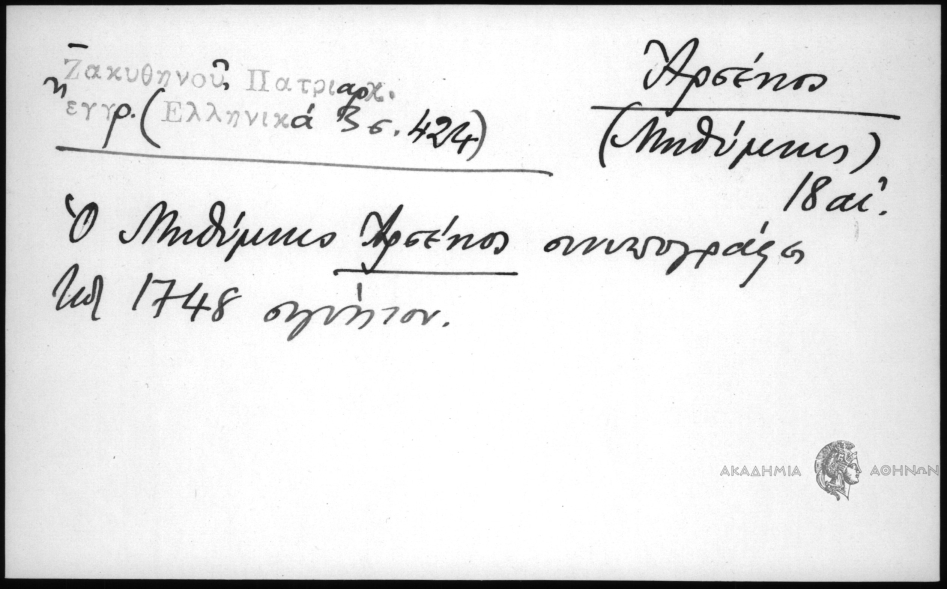 Ζακυθηνοῦ, Πατριαρχ.
ἔγγρ. (Ἑλληνικά 3 σ. 424)
Ἀρσένιος
(Μηθύμνης)
18 αἰ.
Ὁ Μηθύμνης Ἀρσένιος συνυπογράφει
τῷ 1748
ΑΚΑΔΗΜΙΑ ΑΘΗΝΩΝ